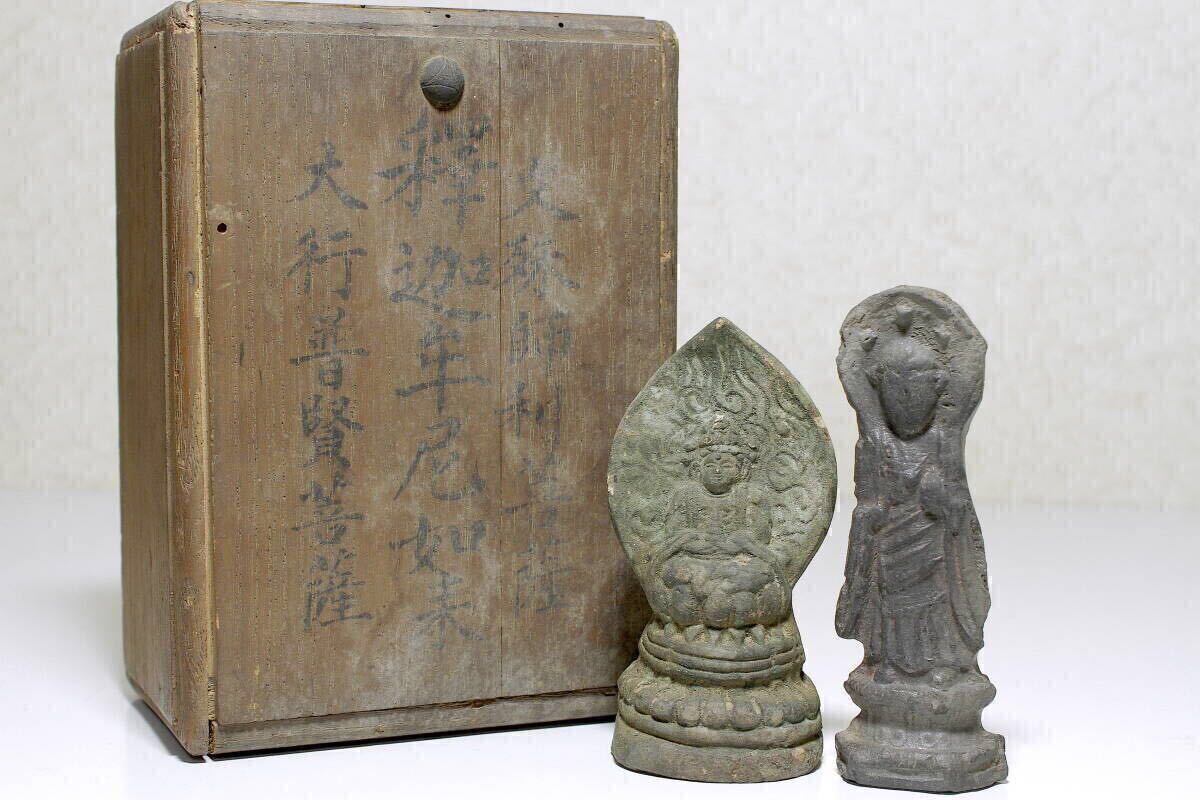 文殊師利菩薩
釋迦牟尼如来
大行普賢菩薩